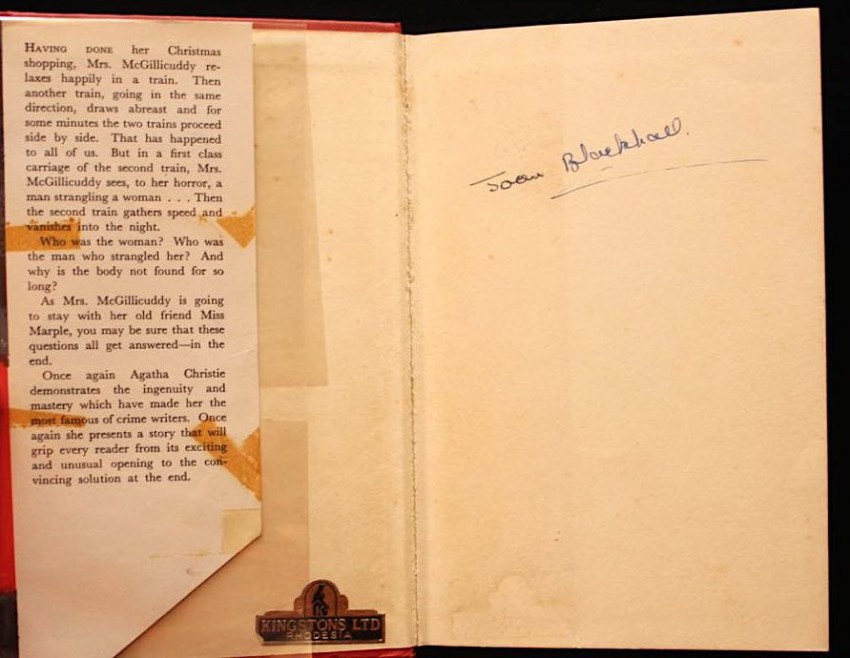 HAVING DONE her Christmas
shopping, Mrs. McGillicuddy re-
laxes happily in a train. Then
another train, going in the same
direction, draws abreast and for
some minutes the two trains proceed
side by side. That has happened
to all of us. But in a first class
carriage of the second train, Mrs.
McGillicuddy sees, to her horror, a
man strangling a woman . . . Then
the second train gathers speed and
vanishes into the night.
Who was the woman? Who was
the man who strangled her? And
why is the body not found for so
long?
As Mrs. McGillicuddy is going
to stay with her old friend Miss
Marple, you may be sure that these
questions all get answered—in the
end.
Once again Agatha Christie
demonstrates the ingenuity and
mastery which have made her the
most famous of crime writers. Once
again she presents a story that will
grip every reader from its exciting
and unusual opening to the con-
vincing solution at the end.
K
KINGSTONS LTD
RHODESIA
Joan Blackhall.